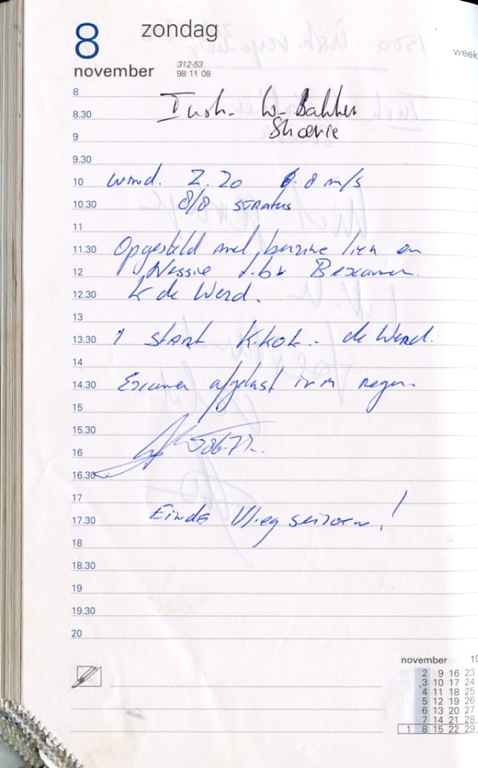 8 zondag
november 312-53
98 11 08
week
8
Instr. W. Bakker
8.30
9
9.30
10 wind. Z. 20 8 m/s
10.30 8/8 stratus
11
11.30 Opgesteld met benzine lier en
12 Nessie
12.30 K de Werd.
13
13.30 1 start K.Kok - de Werd.
14
14.30 Examen afgelast ivm regen
15
15.30
16
16.30
17
17.30 Einde Vliegseizoen!
18
18.30
19
19.30
20
november 19
2 9 16 23
3 10 17 24
4 11 18 25
5 12 19 26
6 13 20 27
7 14 21 28
1 8 15 22 29